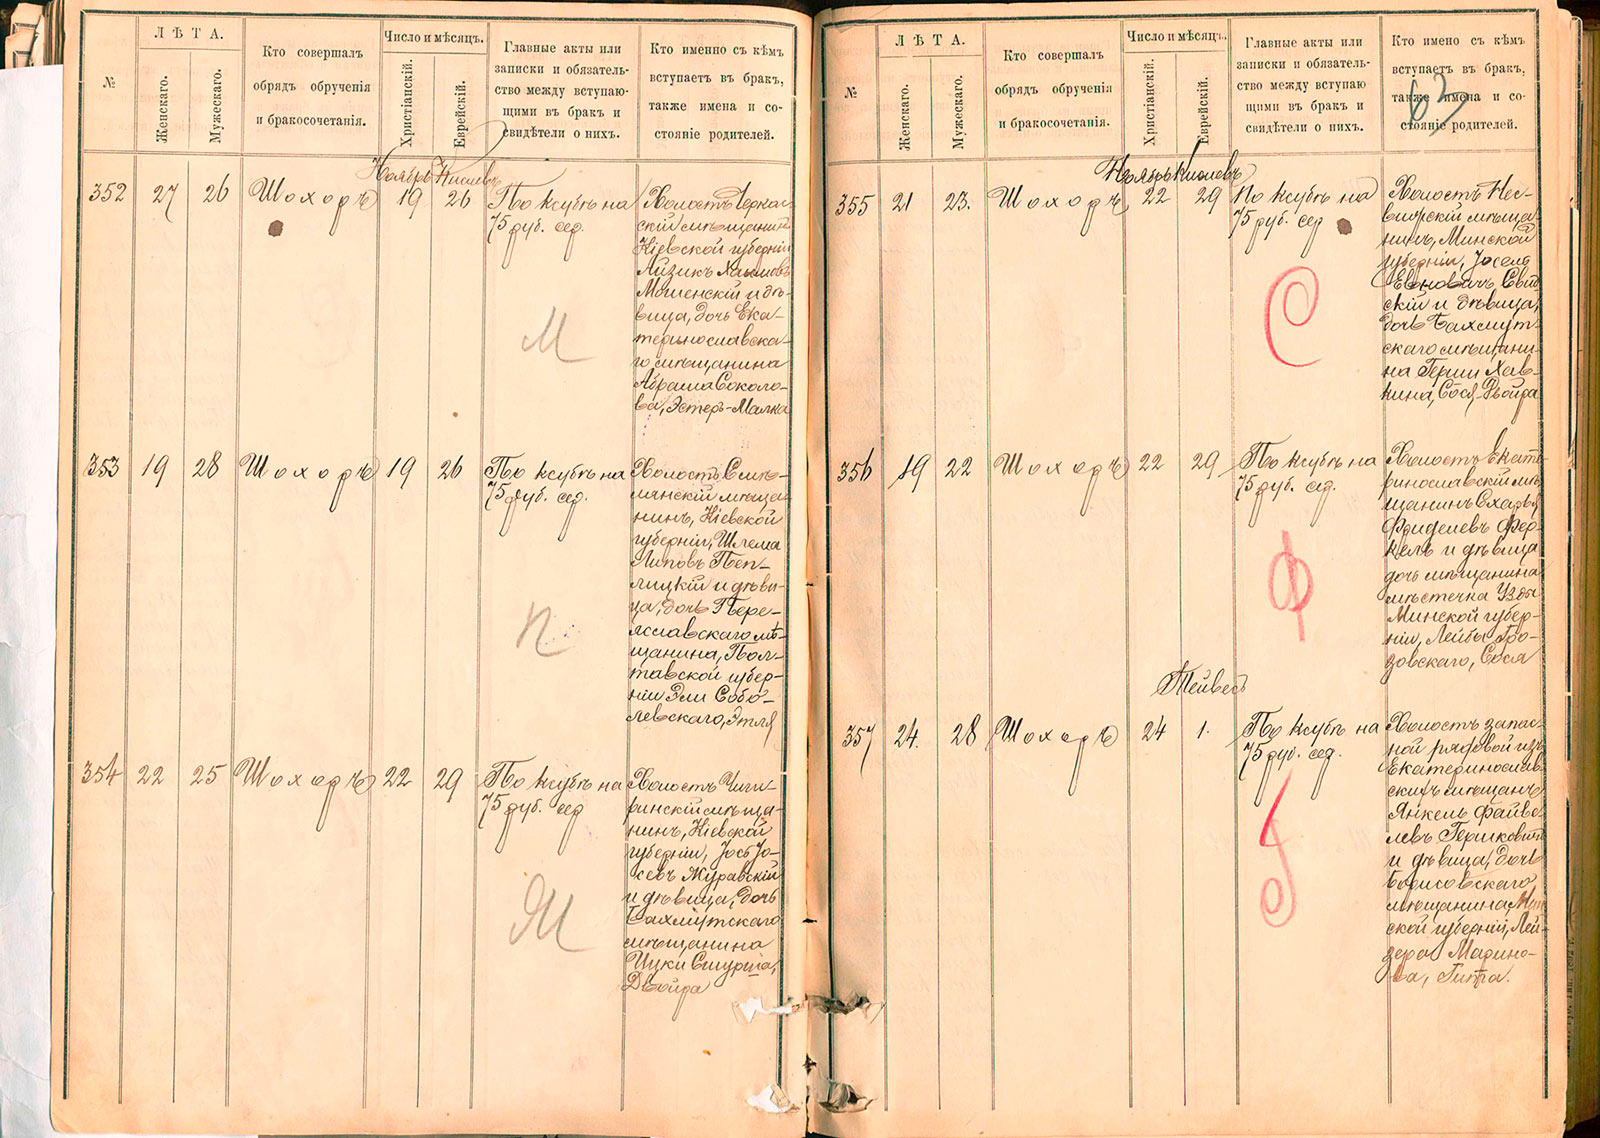 №
ЛѢТА.
Женскаго.
Мужескаго.
Кто совершалъ
обрядъ обрученія
и бракосочетанія.
Число и мѣсяцъ.
Христіанскій.
Еврейскій.
Главные акты или
записки и обязатель-
ство между вступаю-
щими въ бракъ и
свидѣтели о нихъ.
Кто именно съ кѣмъ
вступаетъ въ бракъ,
также имена и со-
стояніе родителей.
Ноябрь Кислевъ
352 27 26 Шохоръ 19 26 По ксубѣ на
75 руб. сер.
Холостъ Черкас-
скій мѣщанинъ
Кіевской губерніи
Айзикъ Хаимовъ
Мошенскій и дѣ-
вица, дочь Ека-
теринославска-
го мѣщанина
Абрама Соколо-
ва, Эстеръ-Малка
М
353 19 28 Шохоръ 19 26 По ксубѣ на
75 руб. сер.
Холостъ Смѣ-
лянскій мѣща-
нинъ, Кіевской
губерніи, Шлема
Липовъ Теп-
лицкій и дѣви-
ца, дочь Пере-
яславскаго мѣ-
щанина, Пол-
тавской губер-
ніи Эли Собо-
левскаго, Этля
П
354 22 25 Шохоръ 22 29 По ксубѣ на
75 руб. сер
Холостъ Чиги-
ринскій мѣща-
нинъ, Кіевской
губерніи, Іось Іо-
севъ Журавскій
и дѣвица, дочь
Бахмутскаго
мѣщанина
Ицки Стурта,
Двойра
№
ЛѢТА.
Женскаго.
Мужескаго.
Кто совершалъ
обрядъ обрученія
и бракосочетанія.
Число и мѣсяцъ.
Христіанскій.
Еврейскій.
Главные акты или
записки и обязатель-
ство между вступаю
щими въ бракъ и
свидѣтели о нихъ.
Кто имено съ кѣмъ
вступаетъ въ бракъ,
также имена и со-
стояніе родителей.
63
Ноябрь Кислевъ
355 21 23. Шохоръ 22 29 По ксубѣ на
75 руб. сер
Холостъ Нес-
вижскій мѣща-
нинъ, Минской
губерніи, Іосель
скій и дѣвица,
дочь Бахмут-
скаго мѣщани-
на Герши Хав-
кина, Сося-Двойра
С
356 19 22 Шохоръ 22 29 По ксубѣ на
75 руб. сер.
Холостъ Екате-
ринославскій мѣ-
щанинъ
Фриделевъ Фер-
кель и дѣвица
дочь мѣщанина
мѣстечка Узды
Минской губер-
ніи, Лейбы Гро-
зовскаго, Сося
Ф
Тейвесъ
357 24. 28 Шохоръ 24 1. По ксубѣ на
75 руб. сер.
Холостъ запас-
ной рядовой изъ
Екатеринослав-
скихъ мѣщанъ
Янкель Файве-
левъ Гершковичъ
и дѣвица, дочь
Борисовскаго
мѣщанина, Мин
ской губерніи, Лей-
зера Марино-
ва, Гитля.